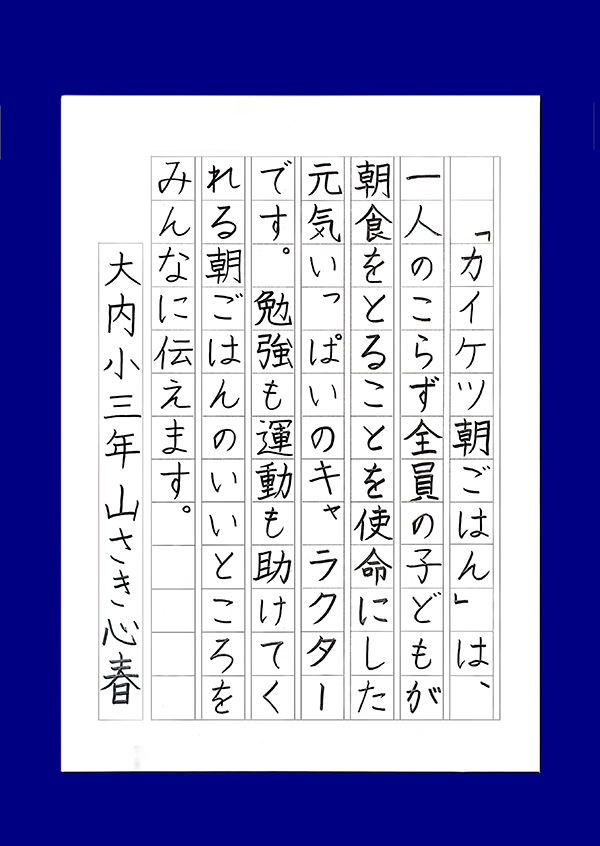 「カイケツ朝ごはん」は、
一人のこらず全員の子どもが
朝食をとることを使命にした
元気いっぱいのキャラクター
です。勉強も運動も助けてく
れる朝ごはんのいいところを
みんなに伝えます。
大内小三年山さき心春